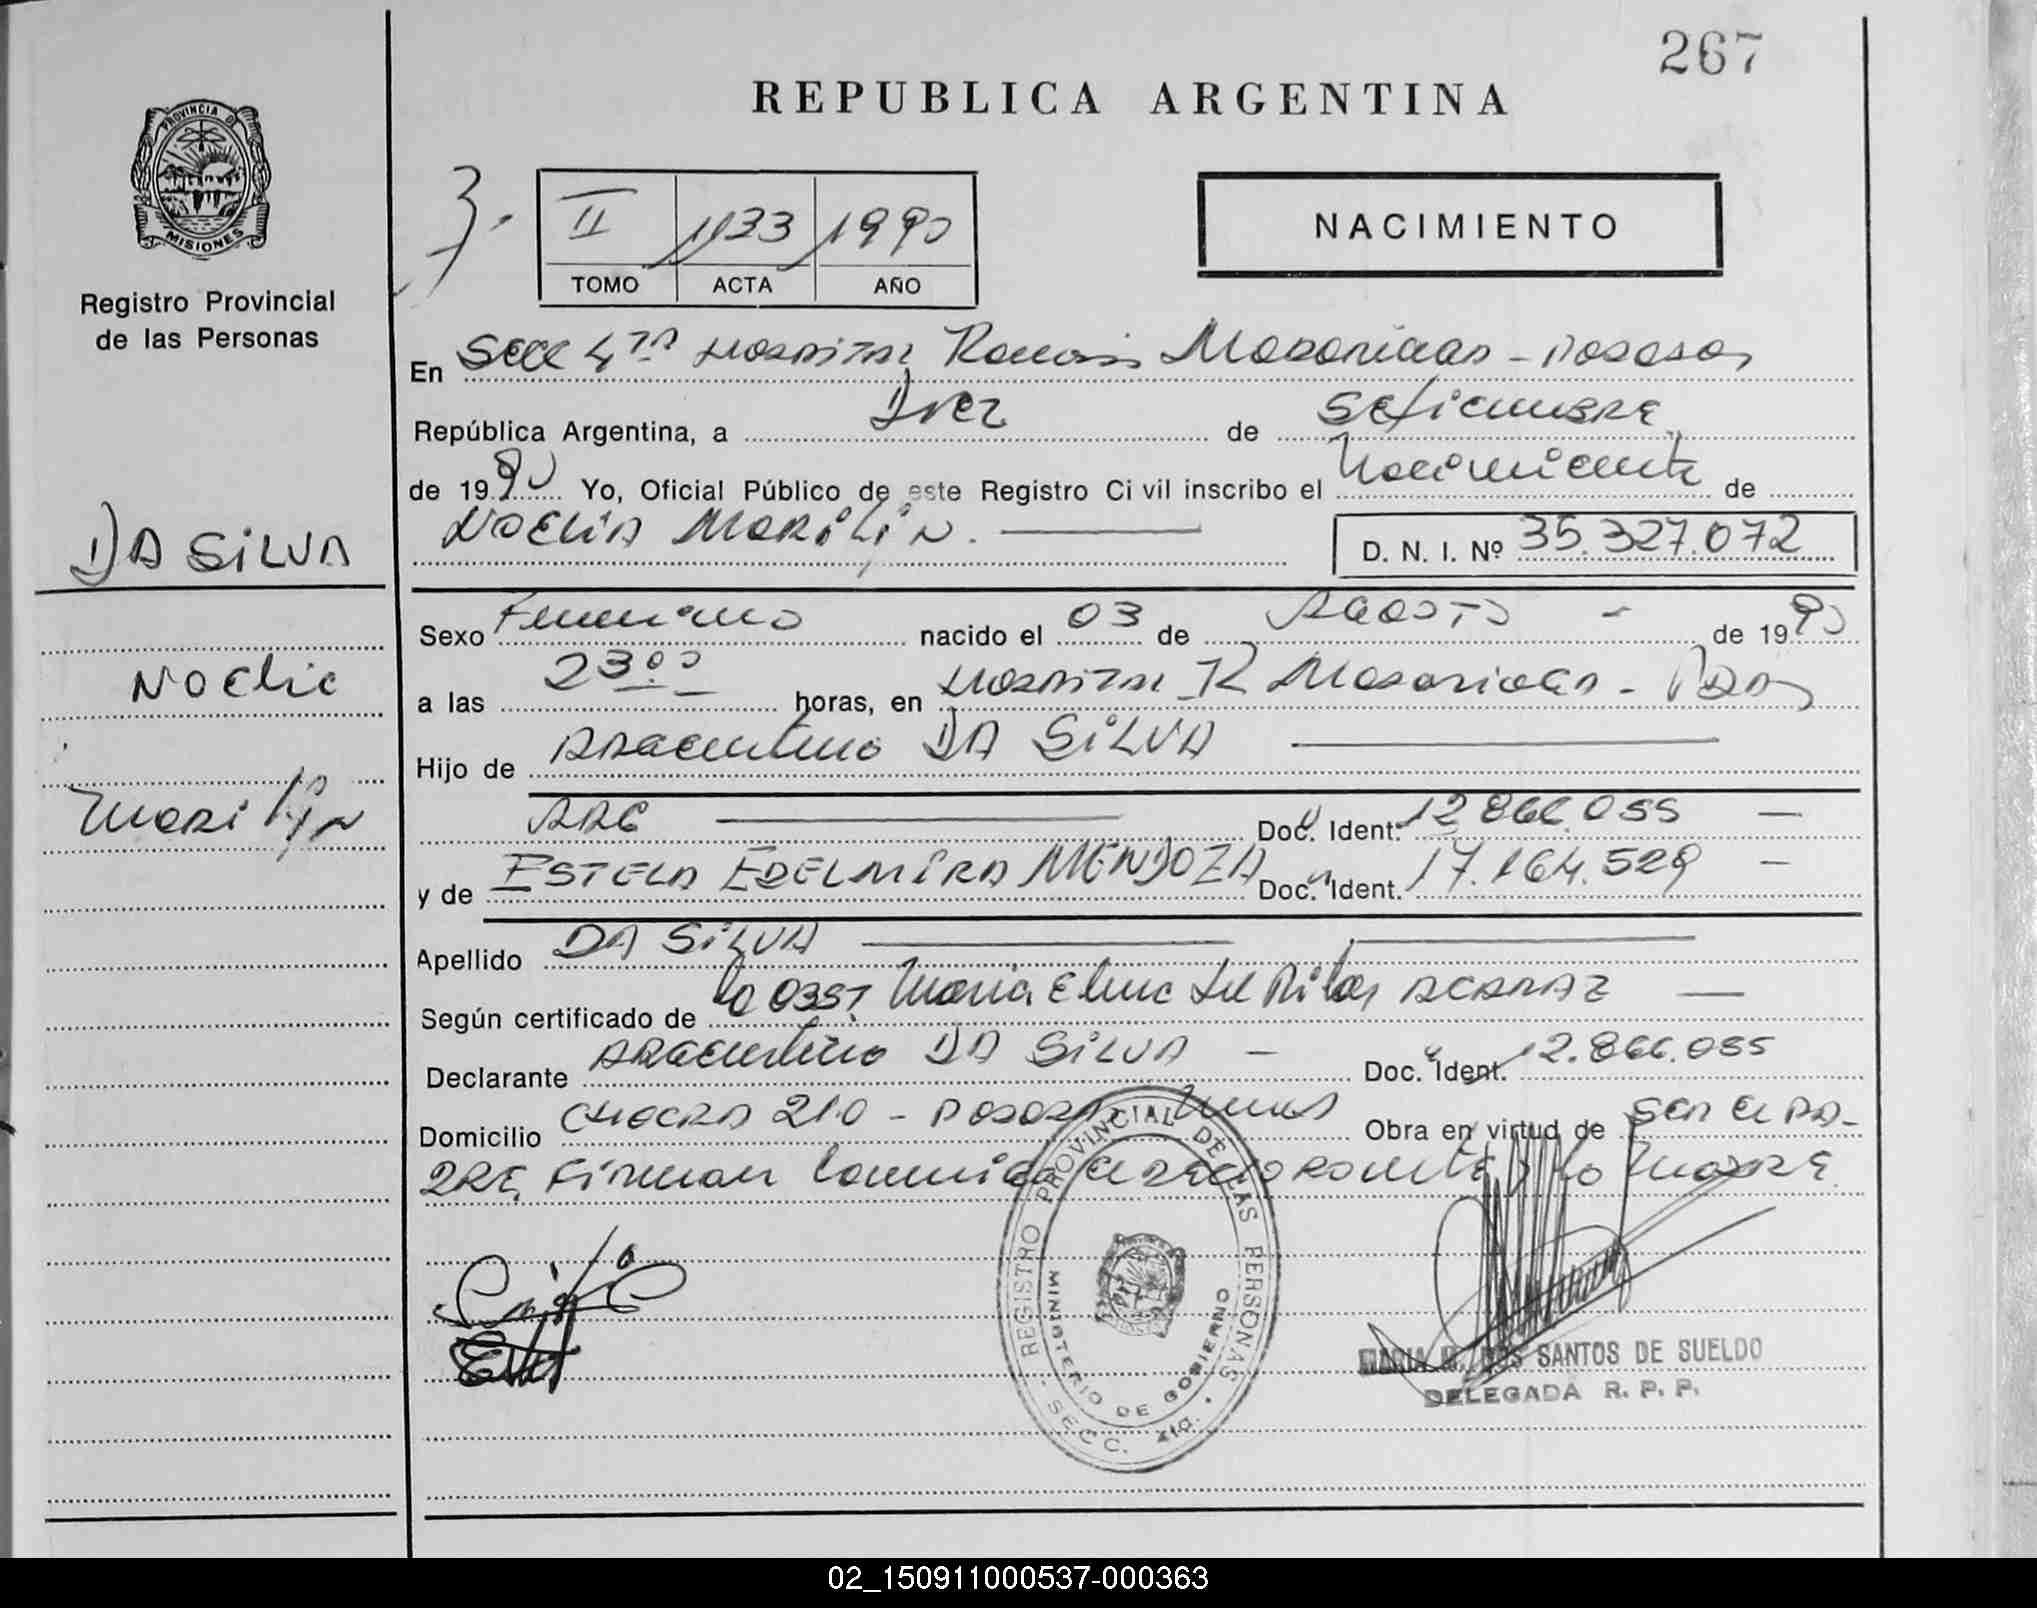 267
REPUBLICA ARGENTINA
PROVINCIA DE
MISIONES
Registro Provincial
de las Personas
3.
II 1133 1990
TOMO ACTA AÑO
NACIMIENTO
En Secc 4ta Hospital Ramon Madariaga - Posadas
República Argentina, a Diez de Setiembre
de 1990 Yo, Oficial Público de este Registro Civil inscribo el Nacimiento de
NOELIA MARILIN. D. N. I. Nº 35.327.072
DA SILVA
Noelia
Marilin
Sexo Femenino nacido el 03 de AGOSTO - de 1990
a las 23:00 horas, en Hospital R Madariaga - Pdas
Hijo de ARGentino DA SILVA
ARG Doc. Ident. 12.866.055 -
y de ESTELA EDELMIRA MENDOZA Doc. Ident. 17.164.529 -
Apellido DA SILVA
Según certificado de Maria Elena del Pilar -
Declarante ARGentino DA SILVA - Doc. Ident. 12.866.055
Domicilio CHACRA 210 - Posadas Obra en virtud de Ser el PA-
DRE, Firman conmigo el declarante y la MADRE
REGISTRO PROVINCIAL DE LAS PERSONAS
MINISTERIO DE GOBIERNO
SECC. 4ta.
MARIA DOS SANTOS DE SUELDO
DELEGADA R. P. P.
02_150911000537-000363